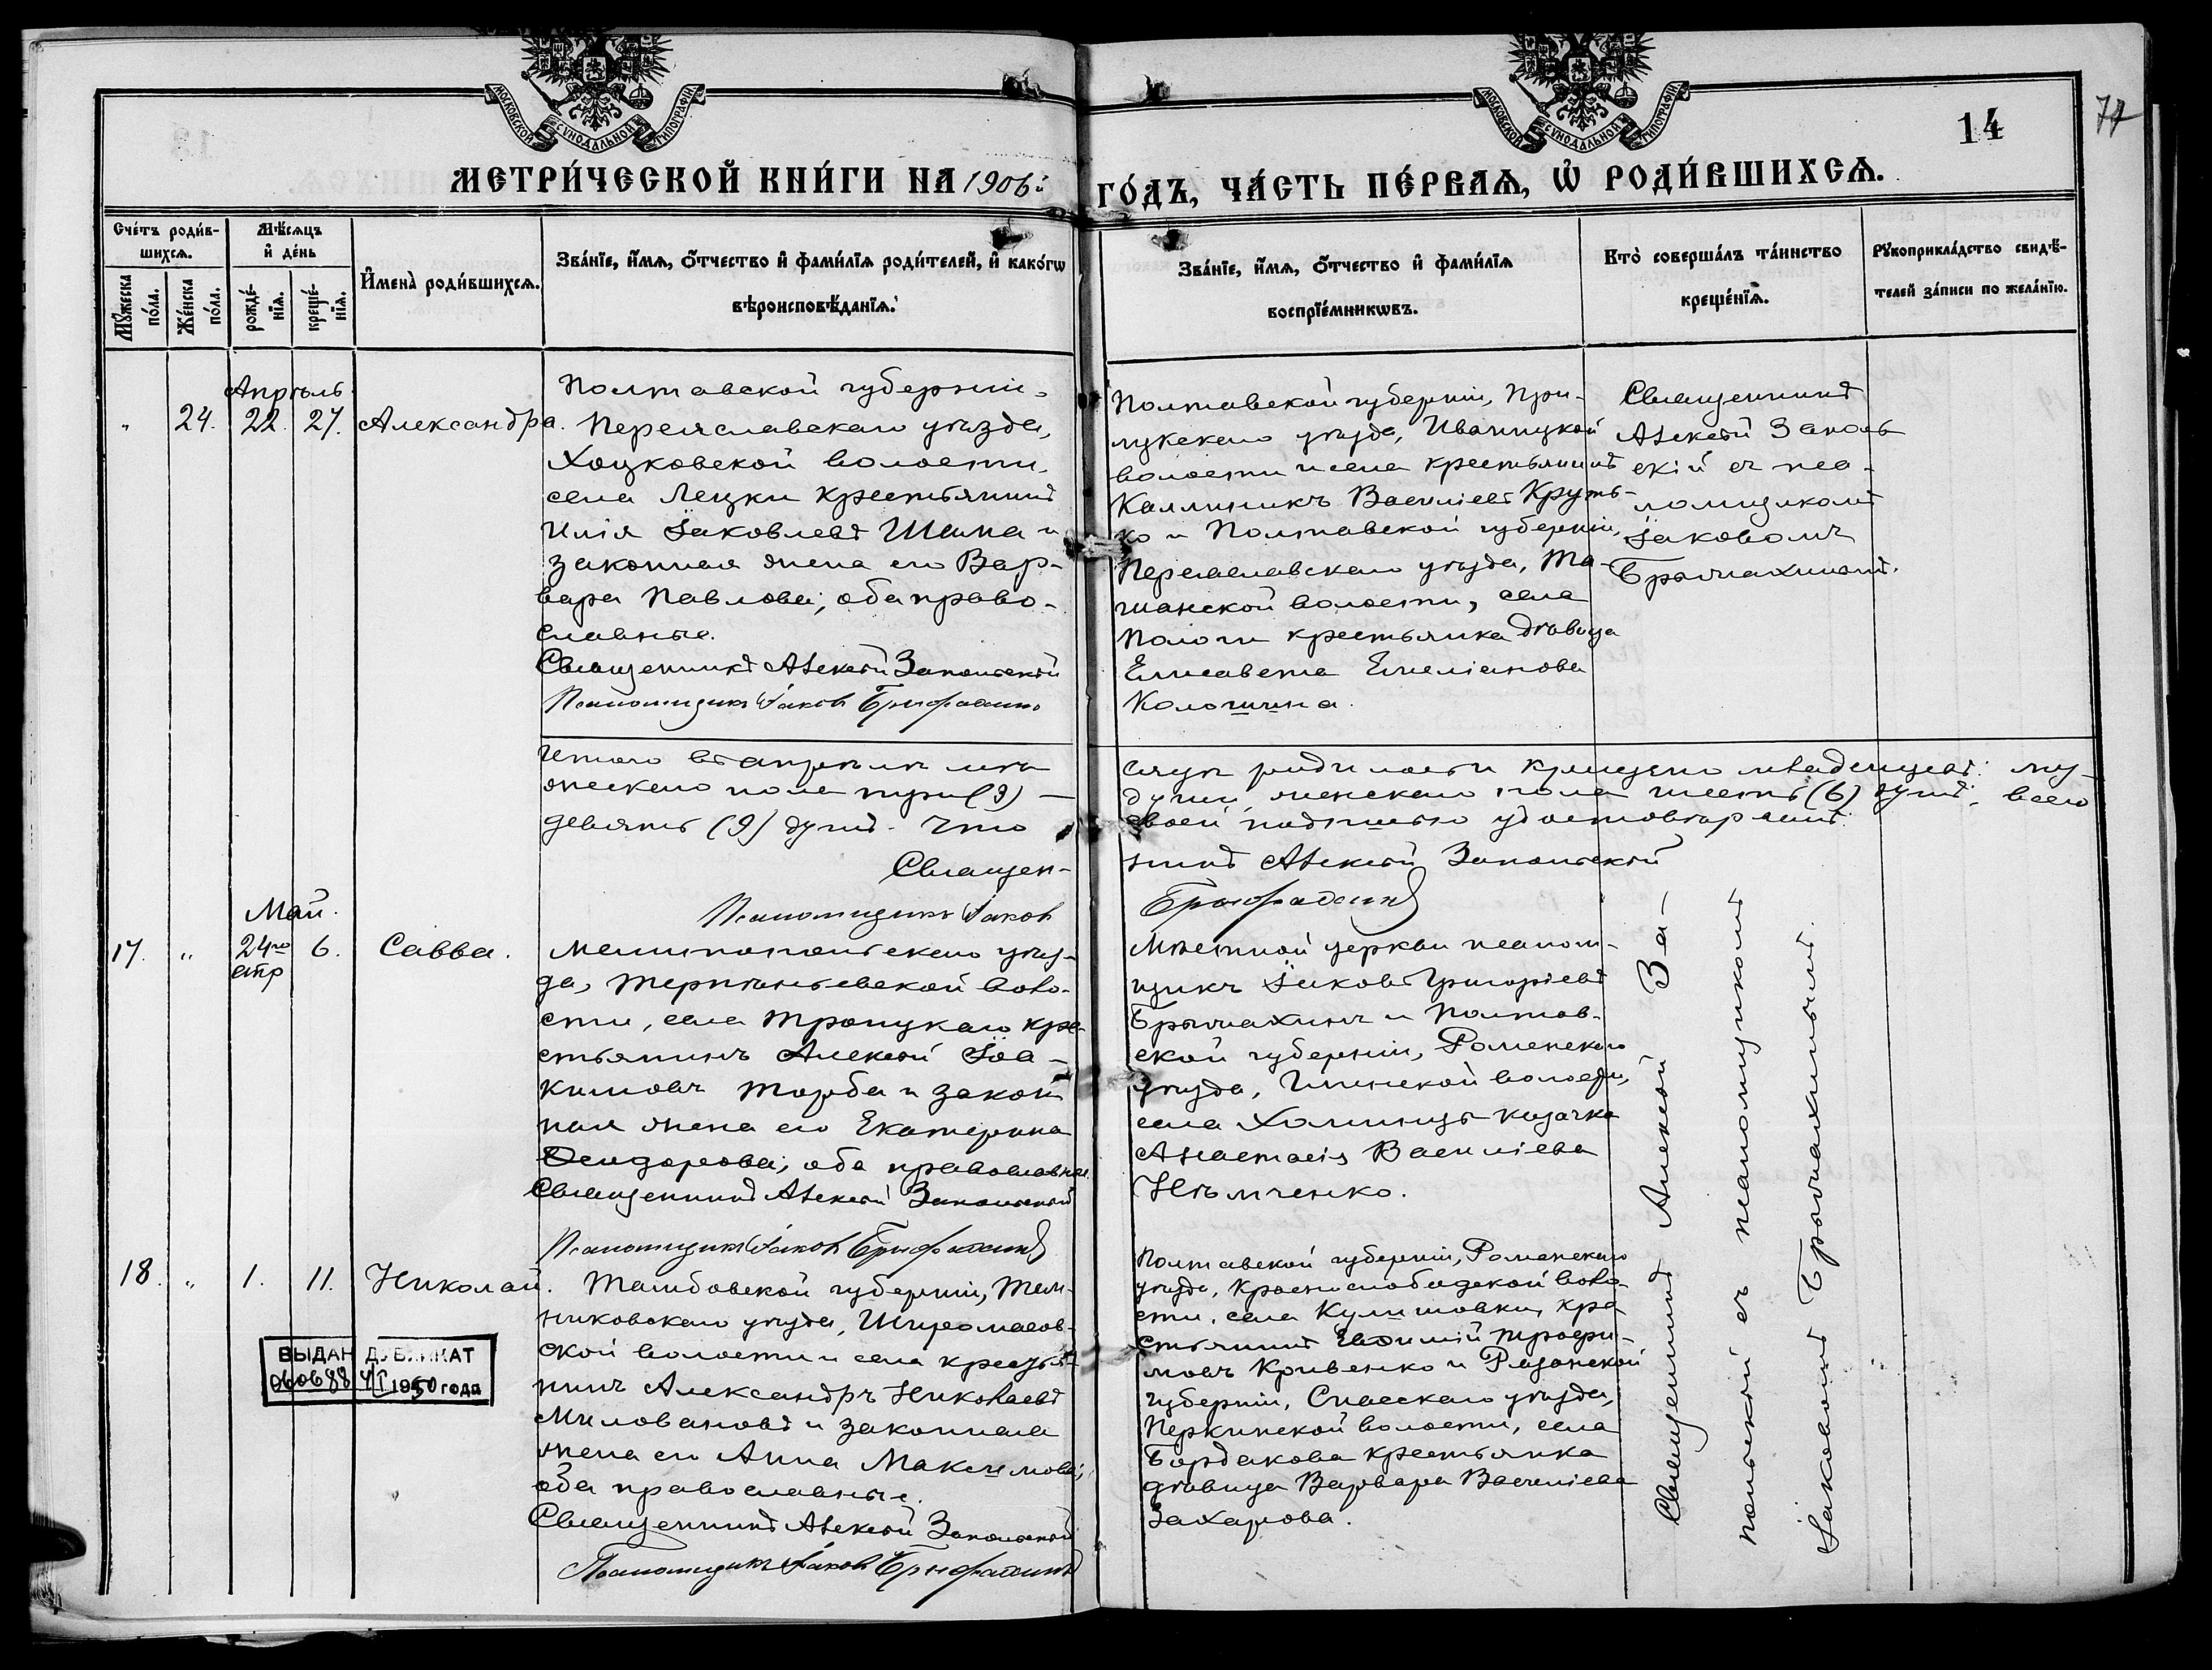 МОСКОВСКОЙ СѴНОДАЛЬНОЙ ТИПОГРАФІИ
МОСКОВСКОЙ СѴНОДАЛЬНОЙ ТИПОГРАФІИ
14
МЕТРИ́ЧЕСКОЙ КНИ́ГИ НА 1906й ГО́ДЪ, ЧА́СТЬ ПЕ́РВАѦ, Ѡ҆ РОДИ́ВШИХСѦ.
Сче́тъ роди́в-
шихсѧ.
Мꙋ́жеска по́ла.
Же́нска по́ла.
Мѣ́сѧцъ
и҆ де́нь
рожде́-
нїѧ.
креще́-
нїѧ.
И҆мена̀ роди́вшихсѧ.
Зва́нїе, и҆́мѧ, ѻ҆́тчество и҆ фами́лїѧ роди́телей, и҆ како́гѡ
вѣроисповѣ́данїѧ.
Зва́нїе, и҆́мѧ, ѻ҆́тчество и҆ фами́лїѧ
воспрїе́мникѡвъ.
Кто̀ соверша́лъ та́инство
креще́нїѧ.
Рꙋкоприкла́дство свидѣ́-
телей за́писи по жела́нїю.
Апрѣль
" 24. 22. 27. Александра.
Полтавской губерніи,
Переяславскаго уѣзда,
Хоцковской волости,
села Лецки крестьянинъ
Илія Іаковлевъ Шама и
законная жена его Вар-
вара Павлова; оба право-
славные.
Священникъ Алексѣй Запольскій
Псаломщикъ Іаковъ
Полтавской губерніи, При-
лукскаго уѣзда, Иваницкой
волости и села крестьянинъ
Каллиникъ Василіевъ Круть-
ко и Полтавской губерніи,
Переяславскаго уѣзда, Та-
шанской волости, села
Пологи крестьянка дѣвица
Елисавета Емеліанова
Колошина.
Священникъ
Алексѣй Заполь
скій съ пса-
ломщикомъ
Іаковомъ
Брыжахинымъ.
Итого въ апрѣлѣ мѣ
сяцѣ родилось и крещено младенцевъ: му-
жескаго пола три (3)
души, женскаго пола шесть (6) душъ, всего
девять (9) душъ. Что
своей подписью удостовѣряемъ:
Священ-
никъ Алексѣй Запольскій
Псаломщикъ Іаковъ
Май.
17. " 24го 6. Савва.
апр
Мелитопольскаго уѣз-
да, Терпѣньевской воло-
сти, села Троицкаго кре-
стьянинъ Алексѣй Іоа-
кимовъ Торба и закон
ная жена его Екатерина
Ѳеодорова; оба православные.
Священникъ Алексѣй Запольскій
Псаломщикъ Іаковъ
Мѣстной церкви псалом-
щикъ Іаковъ Григоріевъ
Брыжахинъ и Полтав-
ской губерніи, Роменскаго
уѣзда, Глинской волости,
села Хоминцы казачка
Анастасія Василіева
Нѣмченко.
18. " 1. 11. Николай.
Тамбовской губерніи, Тем-
никовскаго уѣзда, Широмасов-
ской волости и села крестья-
нинъ Александръ Николаевъ
Миловановъ и законная
жена его Анна Максимова;
оба православные.
Священникъ Алексѣй Запольскій
Псаломщикъ Іаковъ
Полтавской губерніи, Роменскаго
уѣзда, Краснослободской воло-
сти, села Кулишовки, кре
стьянинъ Евѳимій Трофи-
мовъ Кривенко и Рязанской
губерніи, Спасскаго уѣзда,
Перкинской волости, села
Бордакова крестьянка
дѣвица Варвара Василіева
Захарова.
Священникъ Алексѣй За-
польскій съ псаломщикомъ
Іаковомъ Брыжахинымъ.
ВЫДАН ДУБЛИКАТ
060688 1950 года